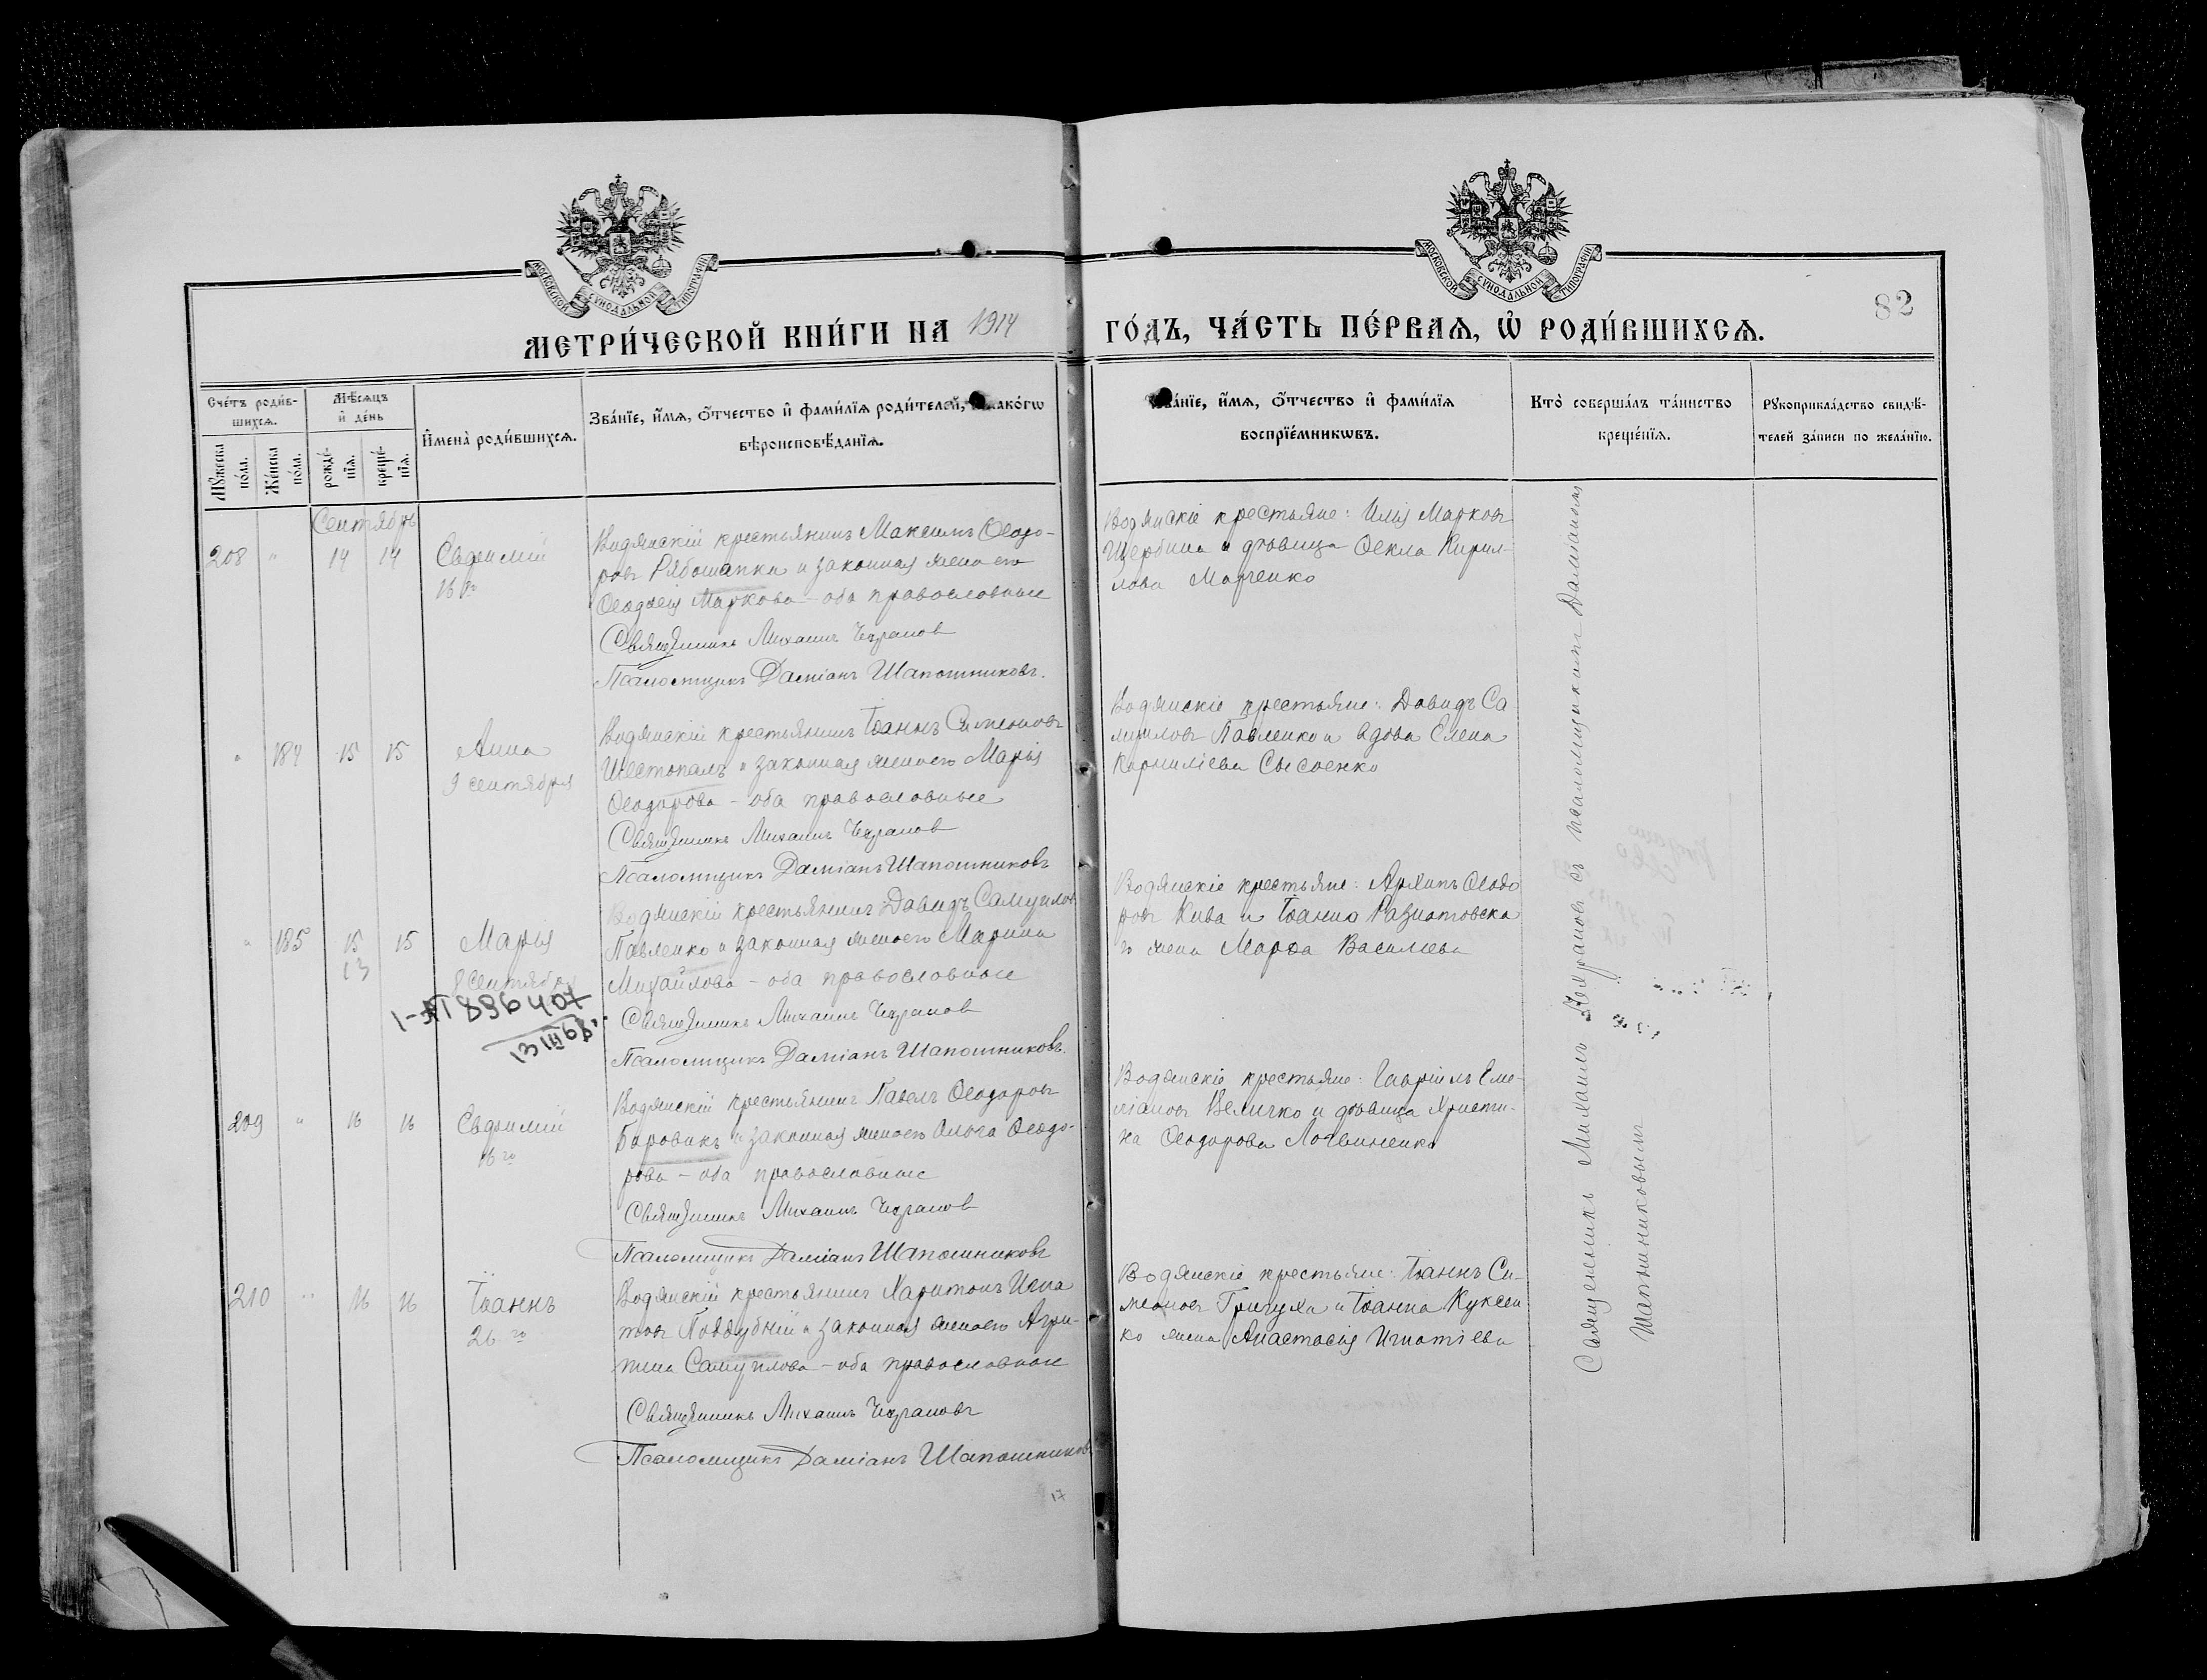 МОСКОВСКОЙ СѴНОДАЛЬНОЙ ТИПОГРАФІИ
МОСКОВСКОЙ СѴНОДАЛЬНОЙ ТИПОГРАФІИ
82
МЕТРИ́ЧЕСКОЙ КНИ́ГИ НА 1914 ГО́ДЪ, ЧА́СТЬ ПЕ́РВАѦ, Ѽ РОДИ́ВШИХСѦ.
Сче́тъ роди́в-
шихсѧ.
Мꙋжеска по́ла.
Же́нска по́ла.
Мѣ́сѧцъ
и҆ де́нь
рожде́-
нїѧ.
креще́-
нїѧ.
И҆мена̀ роди́вшихсѧ.
Зва́нїе, и҆́мѧ, ѻ҆́тчество и҆ фами́лїѧ роди́телей, како́гѡ
вѣроисповѣ́данїѧ.
Зва́нїе, и҆́мѧ, ѻ҆́тчество и҆ фами́лїѧ
воспрїе́мникѡвъ.
Кто̀ соверша́лъ та́инство
креще́нїѧ.
Рꙋкоприкла́дство свидѣ́-
телей за́писи по жела́нїю.
Сентябрь
208 " 14 14 Евѳимій
16 го
Водянскій крестьянинъ Максимъ Ѳеодо-
ровъ Рябошапка и законная жена его
Ѳеодосія Маркова – оба православные
Священникъ Михаилъ Чехрановъ
Псаломщикъ Даміанъ Шапошниковъ.
Водянскіе крестьяне: Илія Марковъ
Щербина и дѣвица Ѳекла Кирил-
лова Марченко
" 184 15 15 Анна
9 сентября
Водянскій крестьянинъ Іоаннъ Симеоновъ
Шестопалъ и законная жена его Марія
Ѳеодорова – оба православные
Священникъ Михаилъ Чехрановъ
Псаломщикъ Даміанъ Шапошниковъ
Водянскіе крестьяне: Давидъ Са
муиловъ Павленко и вдова Елена
Корниліева Сысоенко
" 185 15 15 Марія
13
8 Сентября
1-АП 896407
13 III 68г.
Водянскій крестьянинъ Давидъ Самуиловъ
Павленко и законная жена его Марина
Михайлова – оба православные
Священникъ Михаилъ Чехрановъ
Псаломщикъ Даміанъ Шапошниковъ.
Водянскіе крестьяне: Архипъ Ѳеодо
ровъ Кива и Іоанна
жена Марѳа Василіева
209 " 16 16 Евѳимій
16 го
Водянскій крестьянинъ Павелъ Ѳеодоровъ
Боровикъ и законная жена его Ольга Ѳеодо-
рова – оба православные
Священникъ Михаилъ Чехрановъ
Псаломщикъ Даміанъ Шапошниковъ
Водянскіе крестьяне: Гавріилъ Еме-
ліановъ Величко и дѣвица Христи-
на Ѳеодорова Логвиненко
210 " 16 16 Іоаннъ
26 го
Водянскій крестьянинъ Харитонъ Игна
товъ Поддубній и законная жена его Агри-
пина Самуилова – оба православные
Священникъ Михаилъ Чехрановъ
Псаломщикъ Даміанъ Шапошниковъ
Водянскіе крестьяне: Іоаннъ Си-
меоновъ Григуха и Іоанна Куксен
ко жена Анастасія Игнатіева
Священникъ Михаилъ Чехрановъ съ псаломщикомъ Даміаномъ
Шапошниковымъ
17